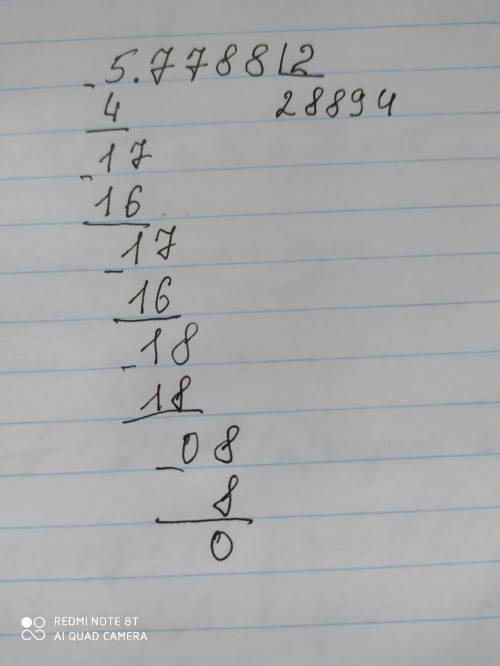 5.7788 2
28894
- 4
17
- 16
17
- 16
18
- 18
08
- 8
0
REDMI NOTE 8T
AI QUAD CAMERA